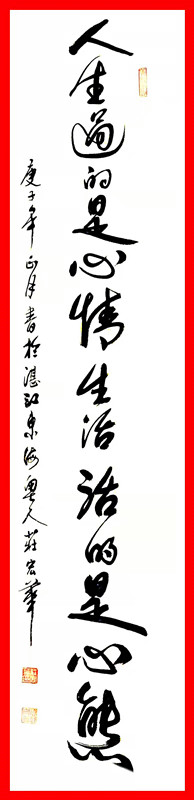 人生過的是心情生活活的是心態
庚子年正月書於湛江東海粤人莊宏華